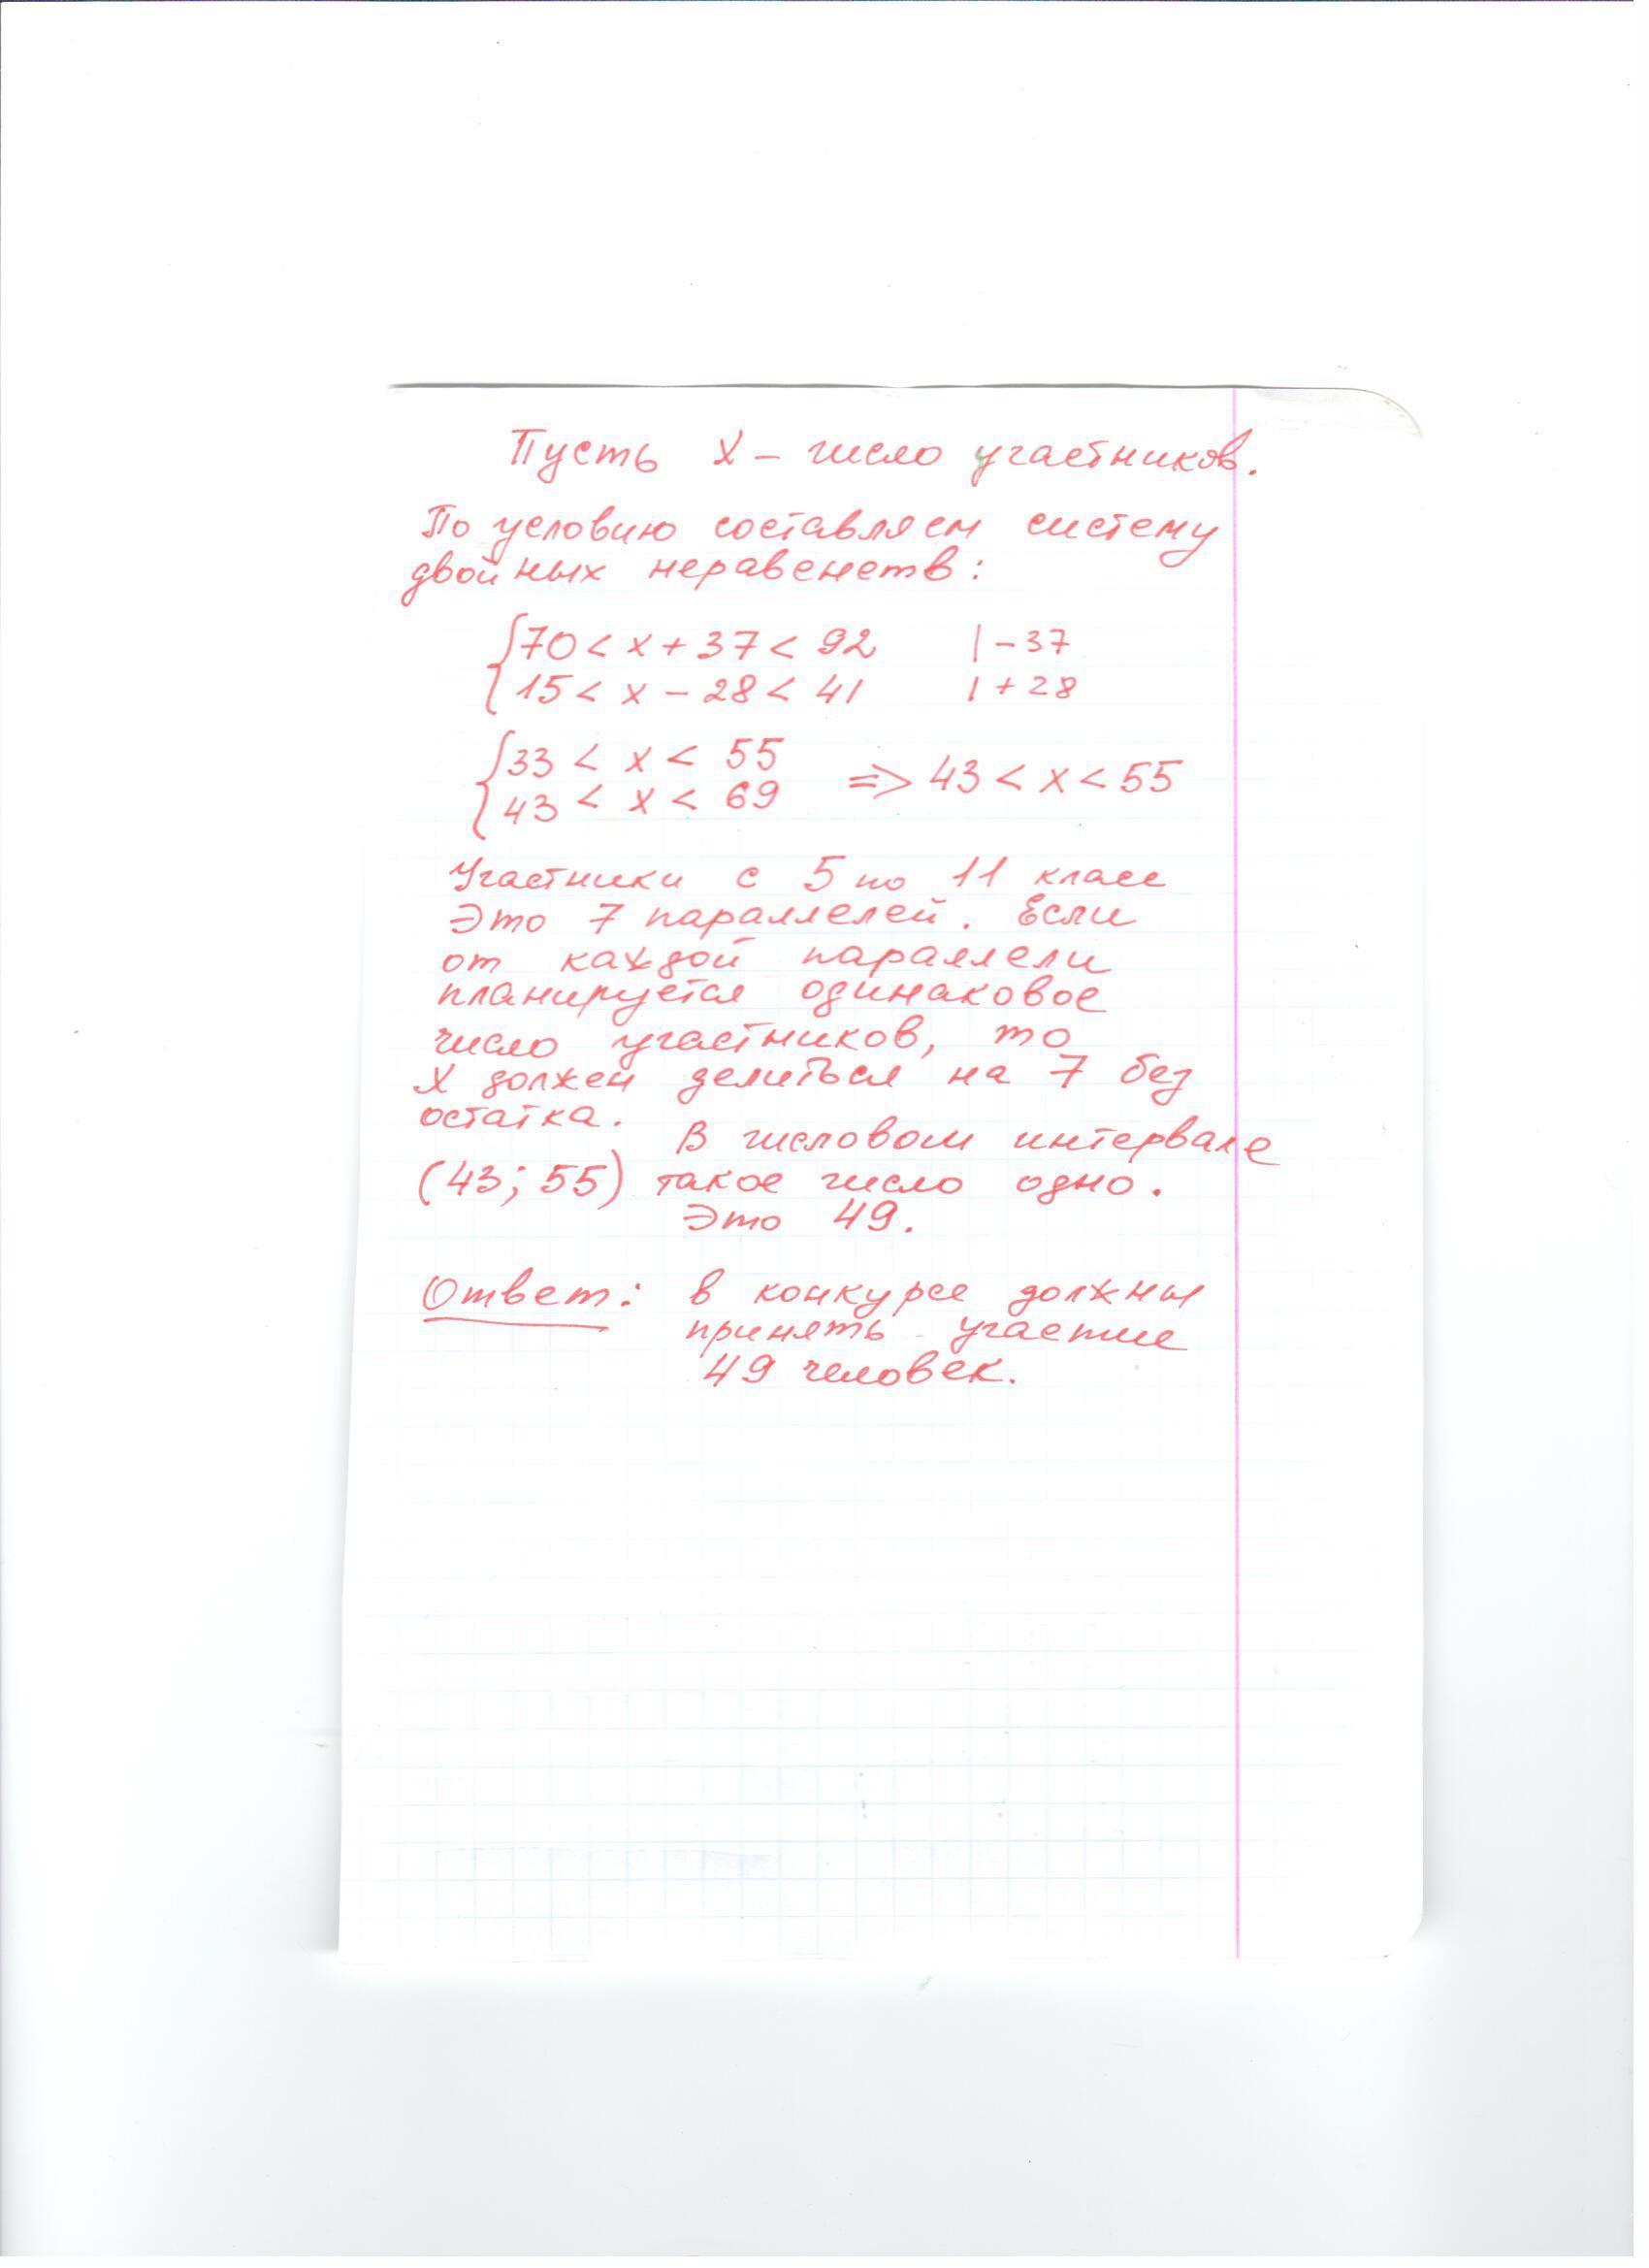 Пусть x – число участников.
По условию составляем систему
двойных неравенств:
{70 < x + 37 < 92 | – 37
{15 < x – 28 < 41 | + 28
{33 < x < 55
{43 < x < 69 => 43 < x < 55
Участники с 5 по 11 класс
Это 7 параллелей. Если
от каждой параллели
планируется одинаковое
число участников, то
x должен делиться на 7 без
остатка. В числовом интервале
(43; 55) такое число одно.
Это 49.
Ответ: в конкурсе должны
принять участие
49 человек.